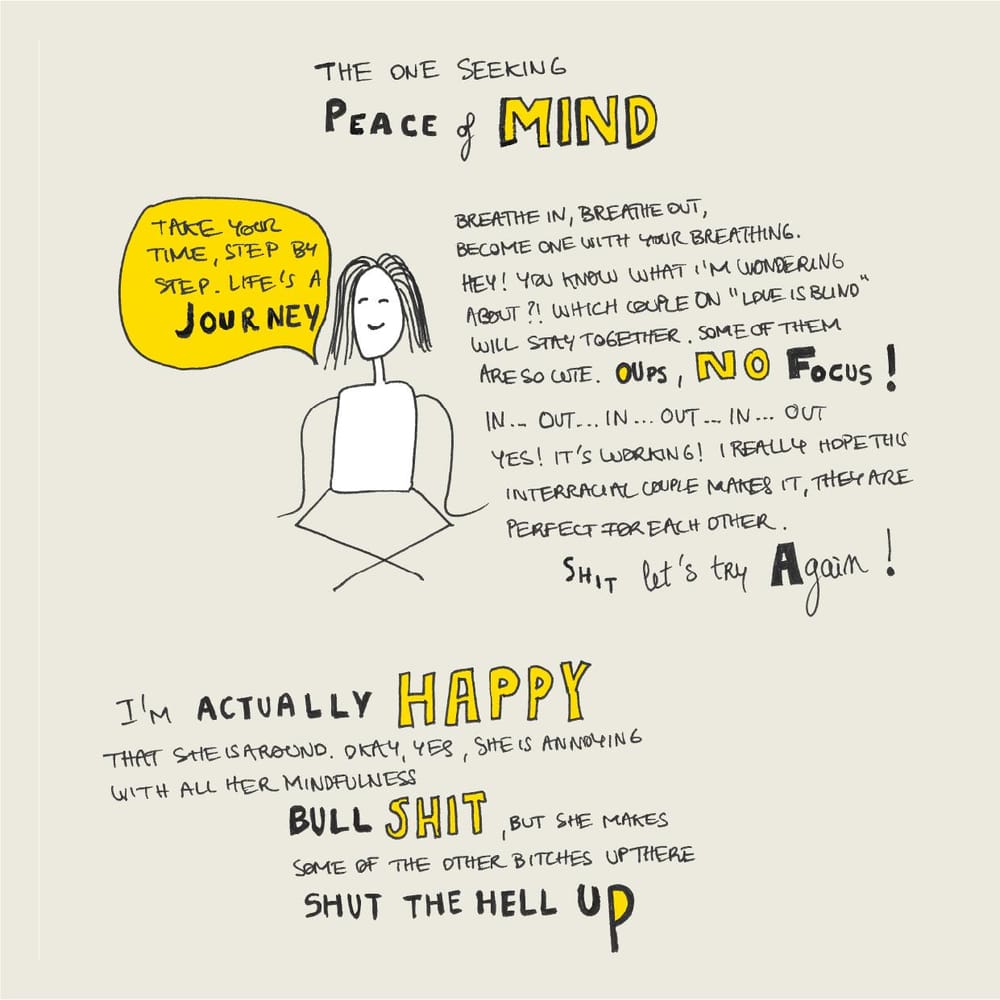 THE ONE SEEKING
PEACE of MIND
TAKE YOUR
TIME, STEP BY
STEP. LIFE'S A
JOURNEY
BREATHE IN, BREATHE OUT,
BECOME ONE WITH YOUR BREATHING.
HEY! YOU KNOW WHAT I'M WONDERING
ABOUT?! WHICH COUPLE ON "LOVE IS BLIND"
WILL STAY TOGETHER. SOME OF THEM
ARE SO CUTE. OUPS, NO FOCUS!
IN... OUT... IN... OUT... IN... OUT
YES! IT'S WORKING! I REALLY HOPE THIS
INTERRACIAL COUPLE MAKES IT, THEY ARE
PERFECT FOR EACH OTHER.
SHIT let's try Again!
I'M ACTUALLY HAPPY
THAT SHE IS AROUND. OKAY, YES, SHE IS ANNOYING
WITH ALL HER MINDFULNESS
BULL SHIT, BUT SHE MAKES
SOME OF THE OTHER BITCHES UP THERE
SHUT THE HELL UP